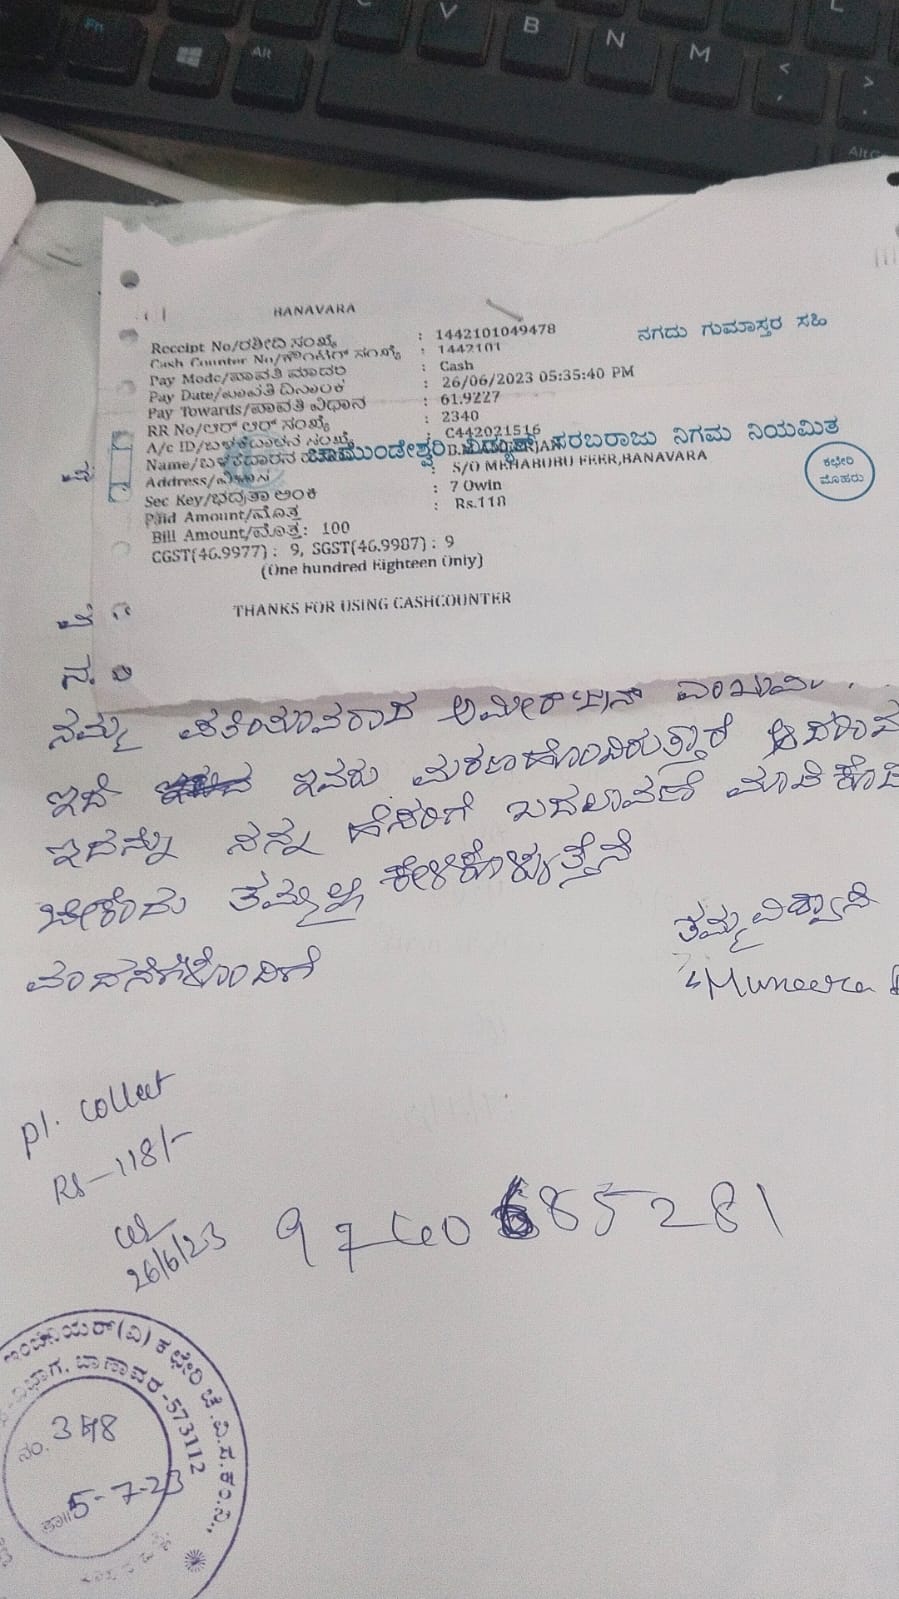 BANAVARA
Receipt No/ರಶೀದಿ ಸಂಖ್ಯೆ : 1442101049478
ನಗದು ಗುಮಾಸ್ತರ ಸಹಿ
Cash Counter No/ಕೌಂಟರ್ ಸಂಖ್ಯೆ : 1442101
Pay Mode/ಪಾವತಿ ಮಾದರಿ : Cash
Pay Date/ಪಾವತಿ ದಿನಾಂಕ : 26/06/2023 05:35:40 PM
Pay Towards/ಪಾವತಿ ವಿಧಾನ : 61.9227
RR No/ಆರ್ ಆರ್ ಸಂಖ್ಯೆ : 2340
A/c ID/ಬಳಕೆದಾರನ ಸಂಖ್ಯೆ : C442021516
ಚಾಮುಂಡೇಶ್ವರಿ ವಿದ್ಯುತ್ ಸರಬರಾಜು ನಿಗಮ ನಿಯಮಿತ
Name/ಬಳಕೆದಾರನ
Address/ವಿಳಾಸ : S/O MEHABUBU PEER,BANAVARA
ಕಛೇರಿ
ಮೊಹರು
Sec Key/ಭದ್ರತಾ ಅಂಕಿ : 7 Owin
Paid Amount/ಮೊತ್ತ : Rs.118
Bill Amount/ಮೊತ್ತ: 100
CGST(46.9977) : 9, SGST(46.9987) : 9
(One hundred Eighteen Only)
THANKS FOR USING CASHCOUNTER
ನಮ್ಮ ಅಮೀರ್ ಜಾನ್
ಇದೆ ಇವರು ಮರಣಹೊಂದಿರುತ್ತಾರೆ
ಇದನ್ನು ನನ್ನ ಹೆಸರಿಗೆ ಬದಲಾವಣೆ ಮಾಡಿ
ಬೇಕೆಂದು ತಮ್ಮಲ್ಲಿ ಕೇಳಿಕೊಳ್ಳುತ್ತೇನೆ
ತಮ್ಮ ವಿಶ್ವಾಸಿ
ವಂದನೆಗಳೊಂದಿಗೆ
Muneera
pl. collect
Rs-118/-
26/6/23
9740685281
ಇಂಜಿನಿಯರ್(ವಿ) ಕಛೇರಿ ಚೆ.ವಿ.ಸ.ಕಂ.ನಿ.,
ವಿಭಾಗ, ಬಾಣಾವರ-573112
ನಂ. 348
ತಾ॥ 5-7-23